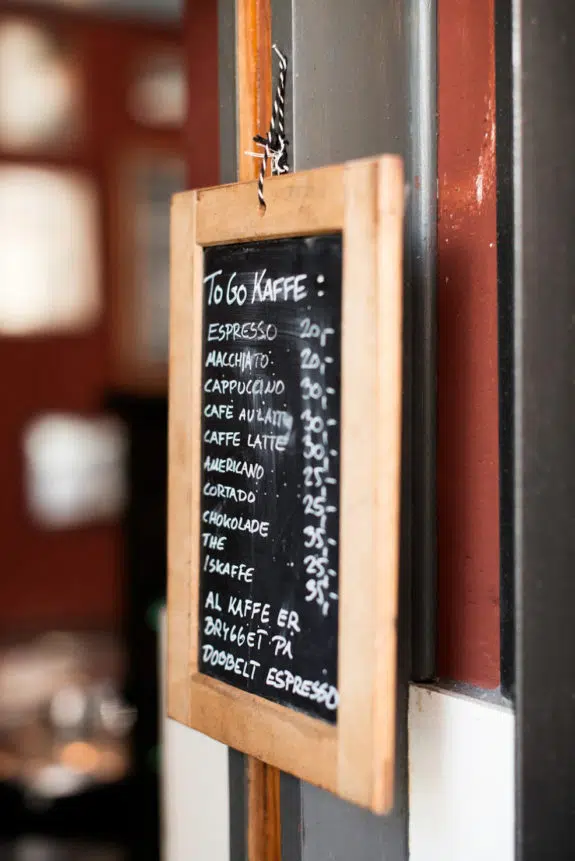 To Go KAFFE :
ESPRESSO 20,-
MACCHIATO 20,-
CAPPUCCINO 30,-
CAFÈ AU LAIT 30,-
CAFFE LATTE 30,-
AMERICANO 25,-
CORTADO 25,-
CHOKOLADE 35,-
THE 25,-
ISKAFFE 35,-
AL KAFFE ER
BRYGGET PÅ
DOBBELT ESPRESSO